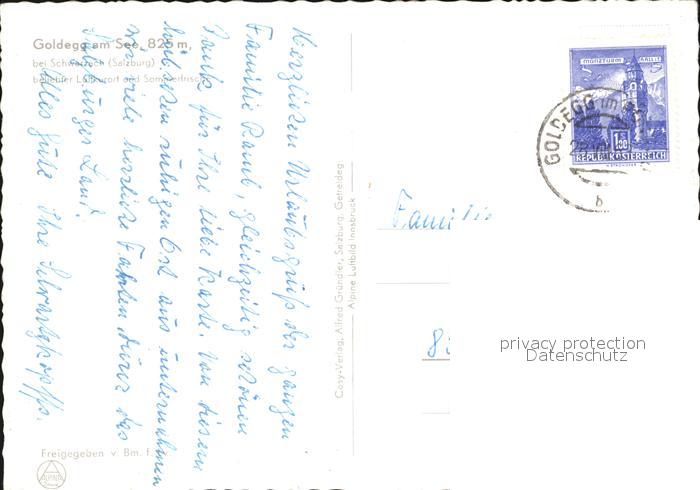 Goldegg am See, 825 m,
bei Schwarzach (Salzburg)
beliebter Luftkurort und Sommerfrische
Herzlichen Urlaubsgruß der ganzen
Familie Raub, gleichzeitig schönen
Dank für Ihre liebe Karte. Von diesem
lieblichen ruhigen Ort aus unternehmen
wir viele herrliche Fahrten durch das
Salzburger Land.
Alles Gute Ihre Schwartzkopffs.
Freigegeben v. Bm. f.
ALPINE
Cosy-Verlag, Alfred Gründler, Salzburg, Getreideg
Alpine Luftbild Innsbruck
MÜNZTURM HALL i. T.
S S
1.50
REPUBLIK ÖSTERREICH
GOLDEGG im
b
Familie
8
privacy protection
Datenschutz